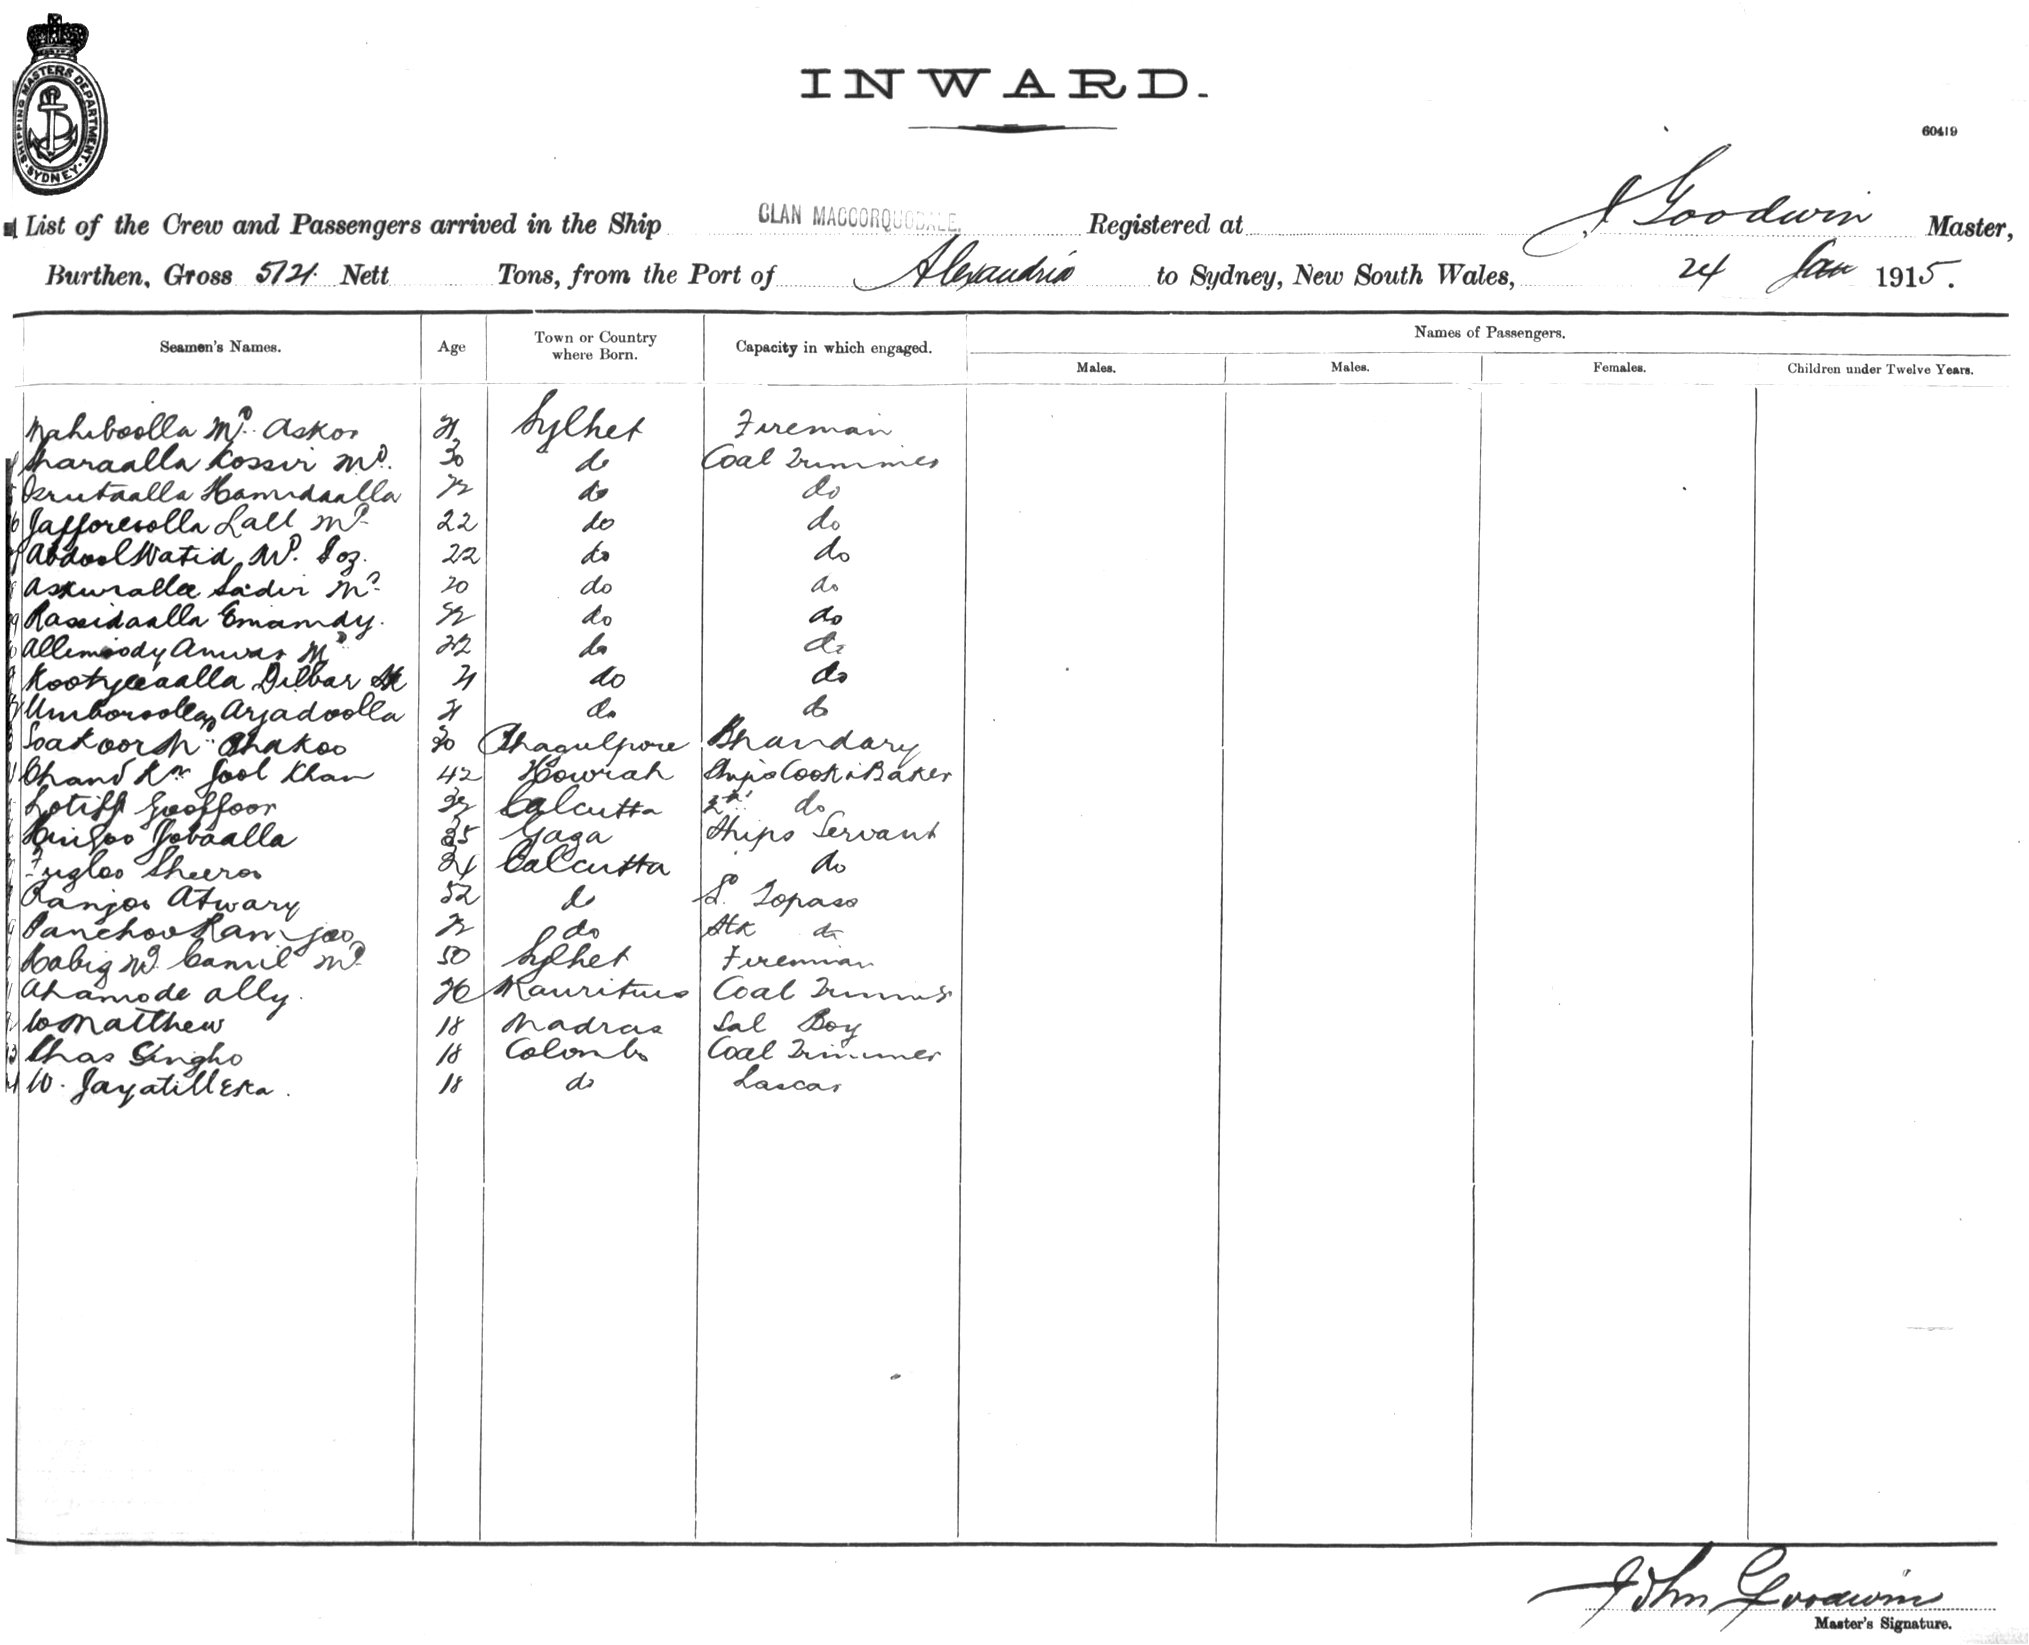 SHIPPING MASTERS DEPARTMENT
SYDNEY
INWARD.
60419
List of the Crew and Passengers arrived in the Ship CLAN MACCORQUODALE. Registered at J Goodwin Master,
Burthen, Gross 5121 Nett Tons, from the Port of Alexandria to Sydney, New South Wales, 24 Jan 1915.
Seamen's Names. Age Town or Country where Born. Capacity in which engaged. Names of Passengers.
Males. Males. Females. Children under Twelve Years.
Mahiboolla Md. Askor 21 Sylhet Fireman
Kossir Md. 30 do Coal Trimmer
Hamidaalla do do
Lall Md 22 do do
Abdool Watid Md. 22 do do
Sadir Md 20 do do
Rassidaalla Emamdy. do do
Allemoody Anwar Md 22 do do
Dilbar Sk 21 do do
Arjadoolla 21 do do
30 Bhagulpore Bhandary
Chand Kn Gool Khan 42 Howrah Ships Cook & Baker
Lotiff Gooffoor Calcutta 2nd do
35 Gaza Ships Servant
Sheeroo Calcutta do
Ranjoo Atwary 52 do Topass
Panchoo Ramjoo do do
Md Camil Md 50 Sylhet Fireman
Ahamode Ally. Mauritius Coal Trimmer
Matthew 18 Madras Sal Boy
Chas Singho 18 Colombo Coal Trimmer
W. Jayatilleka. 18 do Lascar
John Goodwin
Master's Signature.